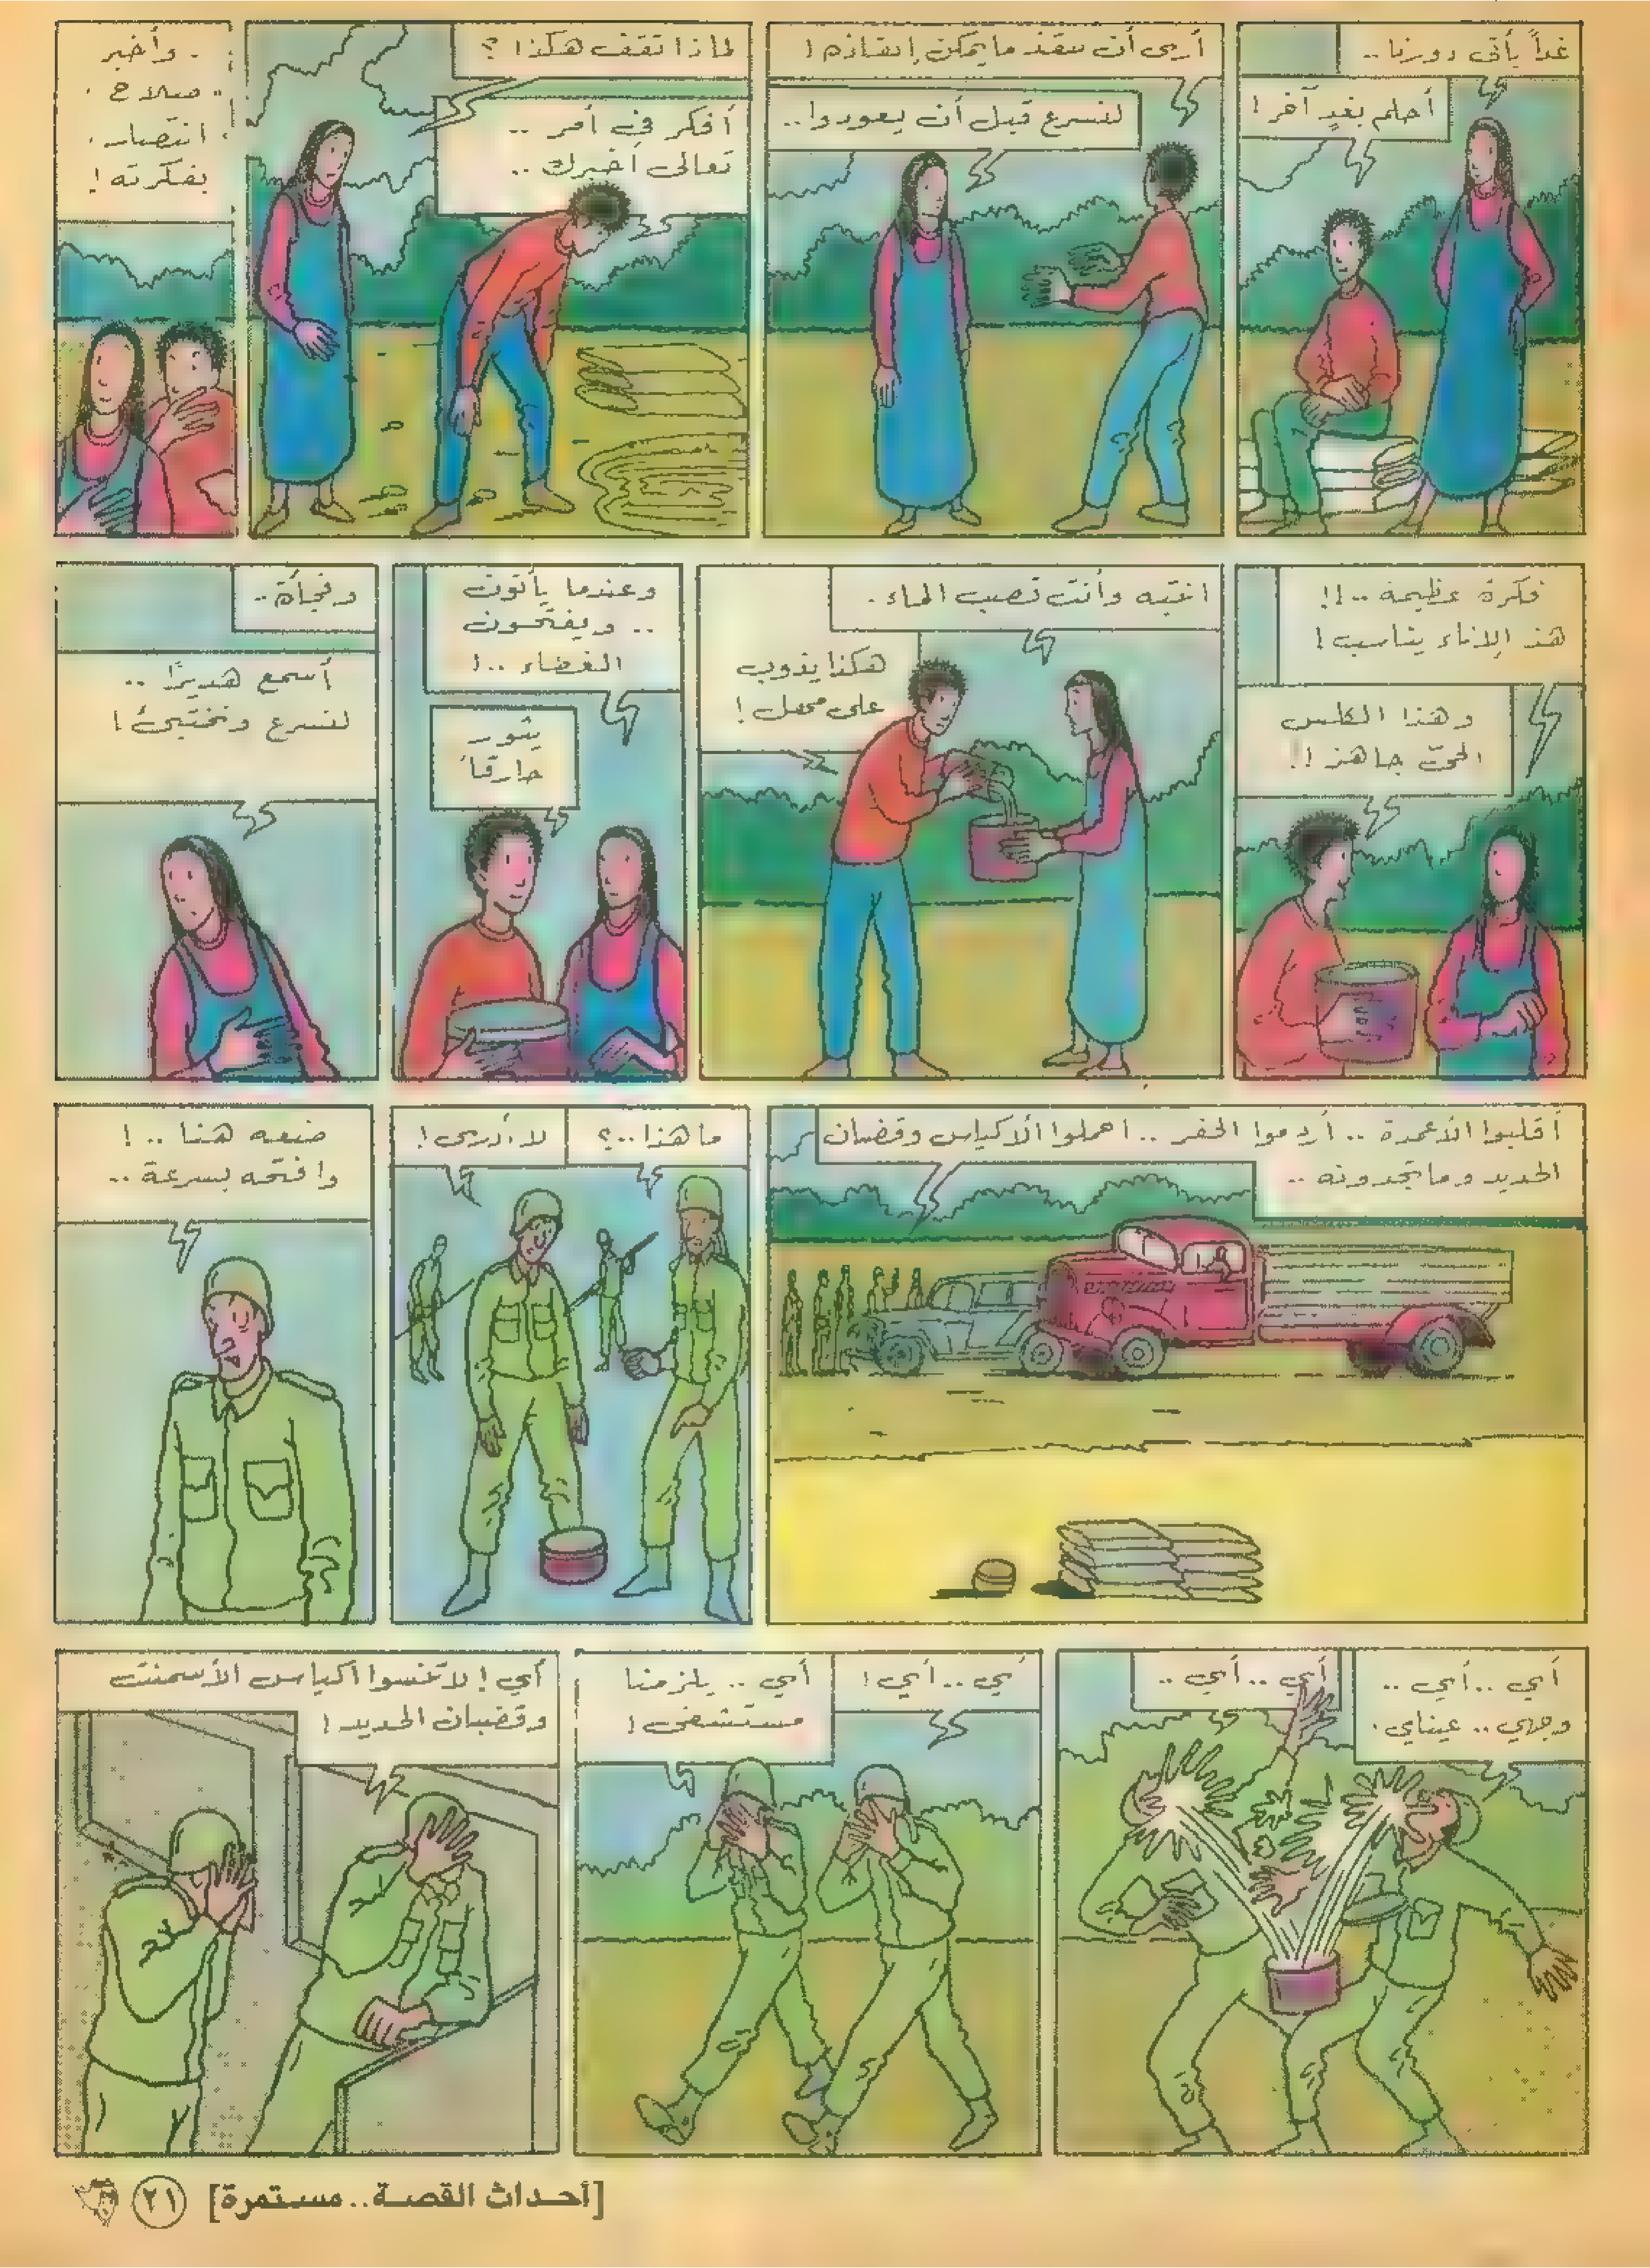 غداً يأتي دورنا..
أحلم بغدٍ آخر!
أرى أن ننقذ ما يمكن إنقاذه!
لنسرع قبل أن يعودوا..
لماذا تقف هكذا؟
أفكر في أمر ..
تعالي أخبرك ..
وأخبر
صلاح
انتصار
بفكرته!
فكرة عظيمة ..!!
هذا الإناء يناسب!
وهذا الكلس
الحيّ جاهز!!
انتبه وأنت تصب الماء.
هكذا يذوب
على مهل!
وعندما يأتون
.. ويفتحون
الغطاء ..!
يثور
حارقاً
وفجأة..
أسمع هديرًا ..
لنسرع ونختبئ!
أقلبوا الأعمدة .. أردموا الحفر .. احملوا الأكياس وقضبان
الحديد وما تجدونه ..
ما هذا ..؟
لا أدري!
ضعه هنا ..!
وافتحه بسرعة ..
أي .. أي ..
وجهي .. عيناي.
أي .. أي ..
أي .. أي!
أي .. يلزمنا
مستشفى!
أي! لا تنسوا أكياس الأسمنت
وقضبان الحديد!
[أحداث القصة.. مستمرة]
٢١